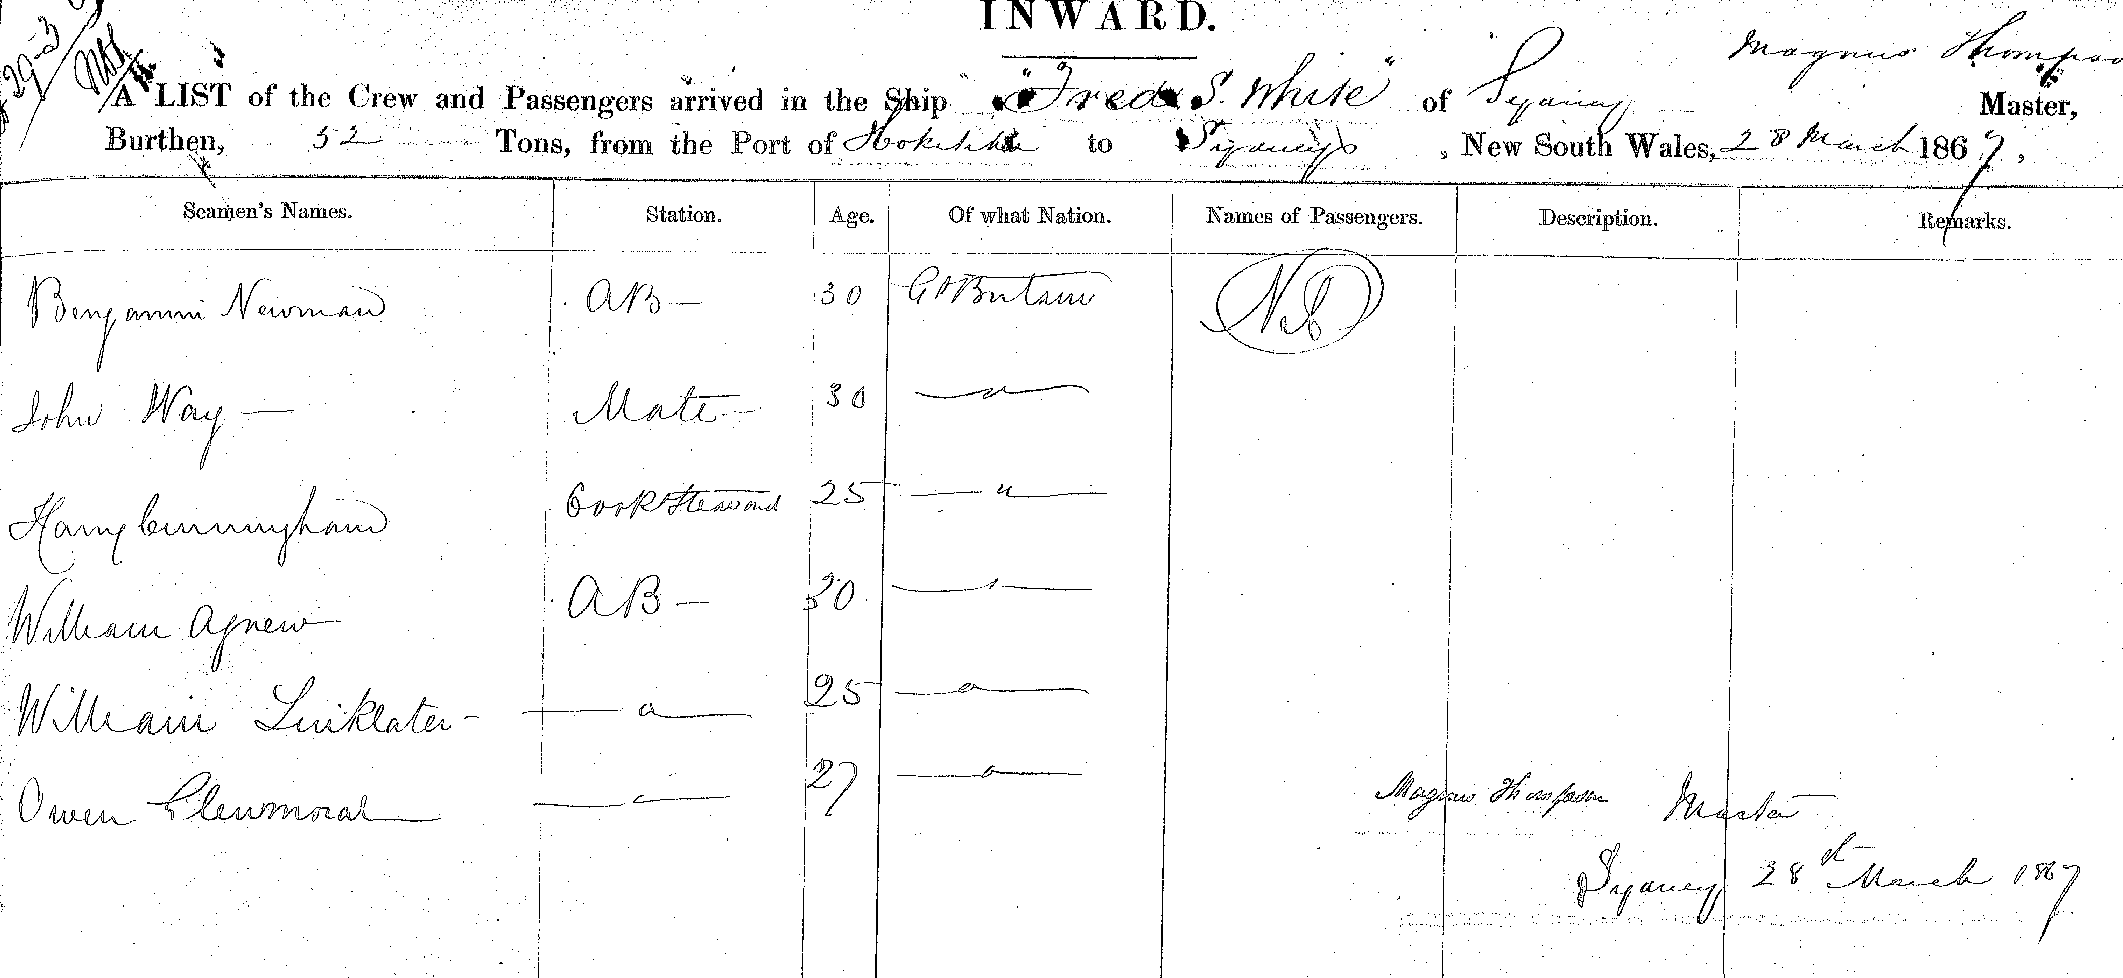 INWARD.
Magnus Thompson
A LIST of the Crew and Passengers arrived in the Ship "Fredk S. White" of Sydney Master,
Burthen, 52 Tons, from the Port of Hokitika to Sydney, New South Wales, 28 March 1867,
Seamen's Names. Station. Age. Of what Nation. Names of Passengers. Description. Remarks.
Benjamin Newman AB — 30 Gt Britain
John Way — Mate — 30 — " —
Harry Cunningham Cook & Steward 25 — " —
William Agnew AB — 30 — " —
William Linklater — " — 25 — " —
Owen — " — 27 — " —
Magnus Thompson Master
Sydney 28th March 1867